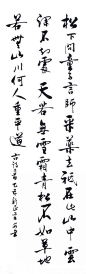 松下問童子言師采藥去祗在此山中雲
深不知處天若無雪霜青松不如草地
若無山川何人重平道